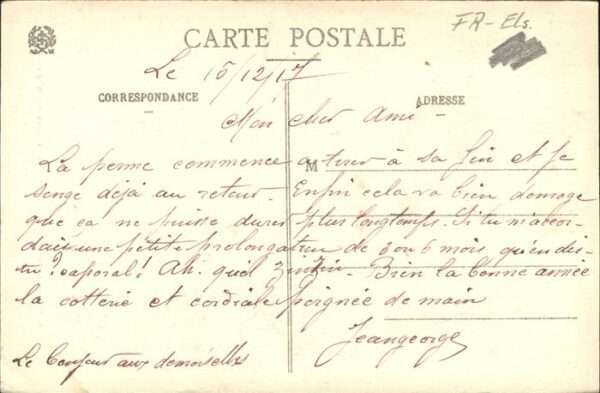 FR - Els.
CARTE POSTALE
Le 16/12/17
CORRESPONDANCE
ADRESSE
Mon cher Ami -
M
La perme commence a tirer à sa fin et je
songe déjà au retour. Enfin cela va bien domage
que ça ne puisse durer plus longtemps. Si tu m'accor-
dais une pétite prolongation de 3 ou 6 mois qu'en dis-
tu? caporal! Ah. quel Bien la bonne année
la cotterie et cordiale poignée de main
Jeangeorge
Le aux demoiselles